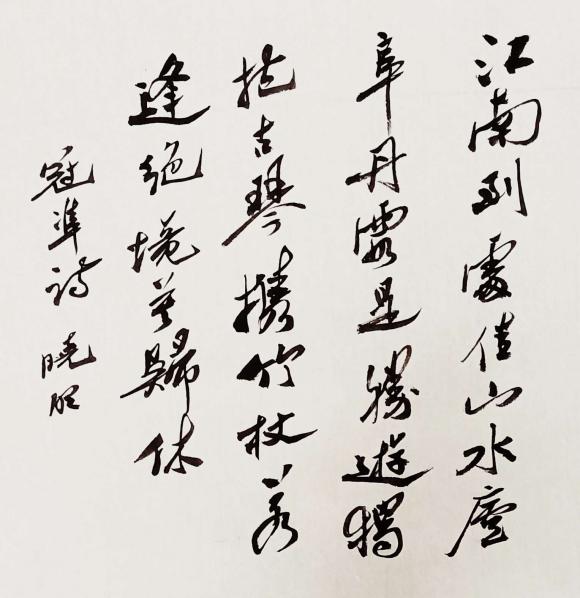 江南到處佳山水廬
阜丹霞是勝遊獨
抱古琴携竹杖若
逢絕境莫歸休
寇準詩 曉